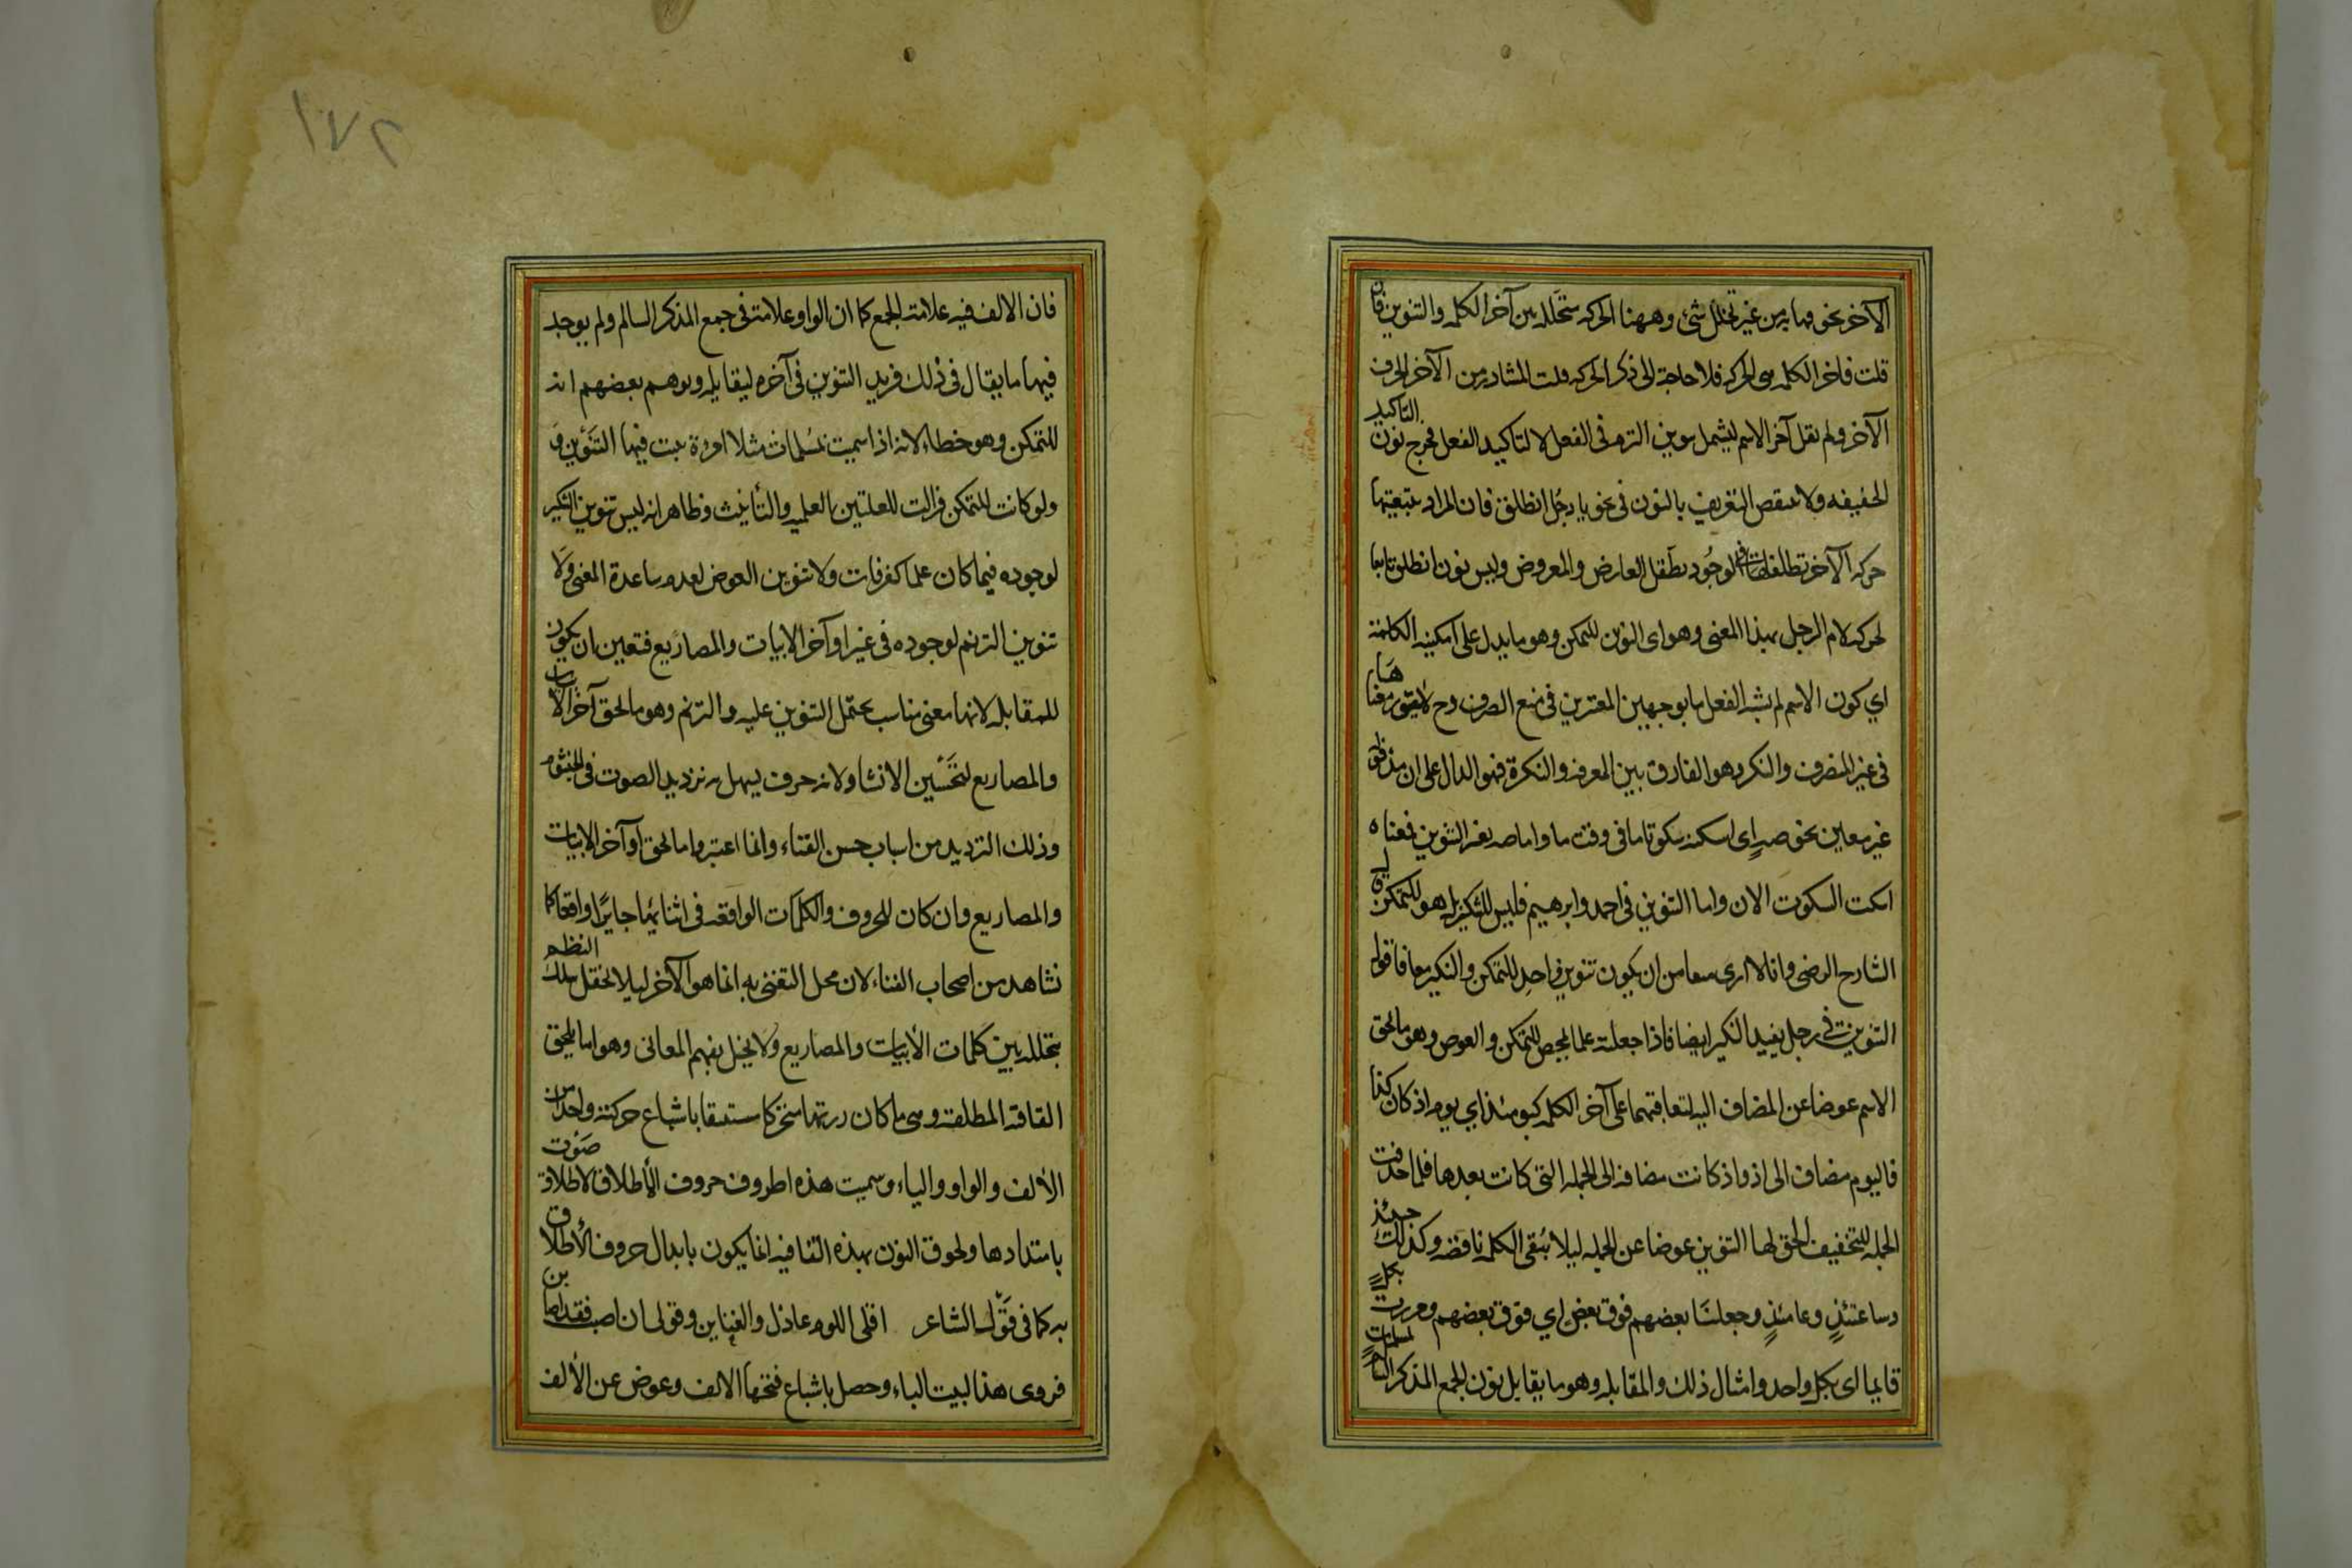 الآخر نحو قيامه من غير تخلل شئ وههنا الحركه متخلله بين آخر الكلمه والتنوين فان
قلت فاخر الكلمه هى الحركه فلا حاجة الى ذكر الحركه قلت المتبادر من الآخر الحرف
الآخر ولم نقل آخر الاسم ليشمل تنوين الترنم فى الفعل لا لتاكيد الفعل فخرج نون التاكيد
الخفيفه ولا ينتقص التعريف بالنون فى نحو يا رجل انطلق فان المراد بتبعيتها
حركه الآخر تطفلها لوجود تطفل العارض والمعروض وليس نون انطلق تابعا
لحركه لام الرجل بهذا المعنى وهو اى التنوين للتمكن وهو ما يدل على امكنيه الكلمة
اي كون الاسم لم يشبه الفعل بالوجهين المعتبرين فى منع الصرف وح لا يتصور معناها
فى غير المنصرف والتنكير وهو الفارق بين المعرفه والنكرة فهو الدال على ان مدخوله
غير معين نحو صهٍ اى اسكت سكوتا ما فى وقت ما واما صه بغير التنوين فمعناه
اسكت السكوت الان واما التنوين فى احمد وابرهيم فليس للتنكير بل هو للتمكن قال
الشارح الرضى وانا لا ارى منعا من ان يكون تنوين واحد للتمكن والتنكير معا فاقول
التنوين فى رجل يفيد التنكير ايضا فاذا جعلته علما تمحض للتمكن والعوض وهو ما لحق
الاسم عوضا عن المضاف اليه لتعاقبهما على آخر الكلمه كيومئذ اي يوم اذ كان كذا
فاليوم مضاف الى اذ واذ كانت مضافه الى الجمله التى كانت بعدها فلما حذفت
الجمله للتخفيف الحق لها التنوين عوضا عن الجمله ليلا تبقى الكلمه ناقصه وكذلك حينئذ
وساعتئذٍ وعامئذٍ وجعلنا بعضهم فوق بعض اي فوق بعضهم ومررت بكلٍ
قايما اى بكل واحد وامثال ذلك والمقابله وهو ما يقابل نون الجمع المذكر السالم كمسلمات
فان الالف فيه علامة الجمع كما ان الواو علامة فى جمع المذكر السالم ولم يوجد
فيها ما يقابل فى ذلك فزيد التنوين فى آخره ليقابله وتوهم بعضهم انه
للتمكن وهو خطاء لانه اذا سميت بمسلمات مثلا امرءة ثبت فيها التنوين
ولو كانت للتمكن لزالت للعلتين العلميه والتأنيث وظاهر انه ليس تنوين التنكير
لوجوده فيما كان علما كعرفات ولا تنوين العوض لعدم مساعدة المعنى ولا
تنوين الترنم لوجوده فى غير اوآخر الابيات والمصاريع فتعين ان يكون
للمقابله لانها معنى مناسب يحتمل التنوين عليه والترنم وهو ما لحق آخر الابيات
والمصاريع لتحسين الانشاد لانه حرف يسهل به ترديد الصوت فى الخيشوم
وذلك الترديد من اسباب حسن الغناء وانما اعتبروا ما لحق اوآخر الابيات
والمصاريع وان كان للحروف والكلمات الواقعه فى اثنائها جايزا واقعا كما
نشاهد من اصحاب الغناء لان محل التغنى به انما هو الآخر ليلا يختل سلك النظم
بتخلله بين كلمات الأبيات والمصاريع ولا يخل بفهم المعانى وهو اما يلحق
القافية المطلقة وهى ما كان رويها متحركا مستعقبا باشباع حركته واحدا من
الألف والواو والياء وسميت هذه الحروف حروف الأطلاق لاطلاق صوت
بامتدادها ولحوق النون بهذه القافيه انما يكون بابدال حروف الأطلاق
به كما فى قول الشاعر اقلى اللوم عاذل والعتابن وقولى ان اصبت فقد اصابن
فروى هذا لبيت الباء وحصل باشباع فتحها الالف وعوض عن الألف
١٧٢